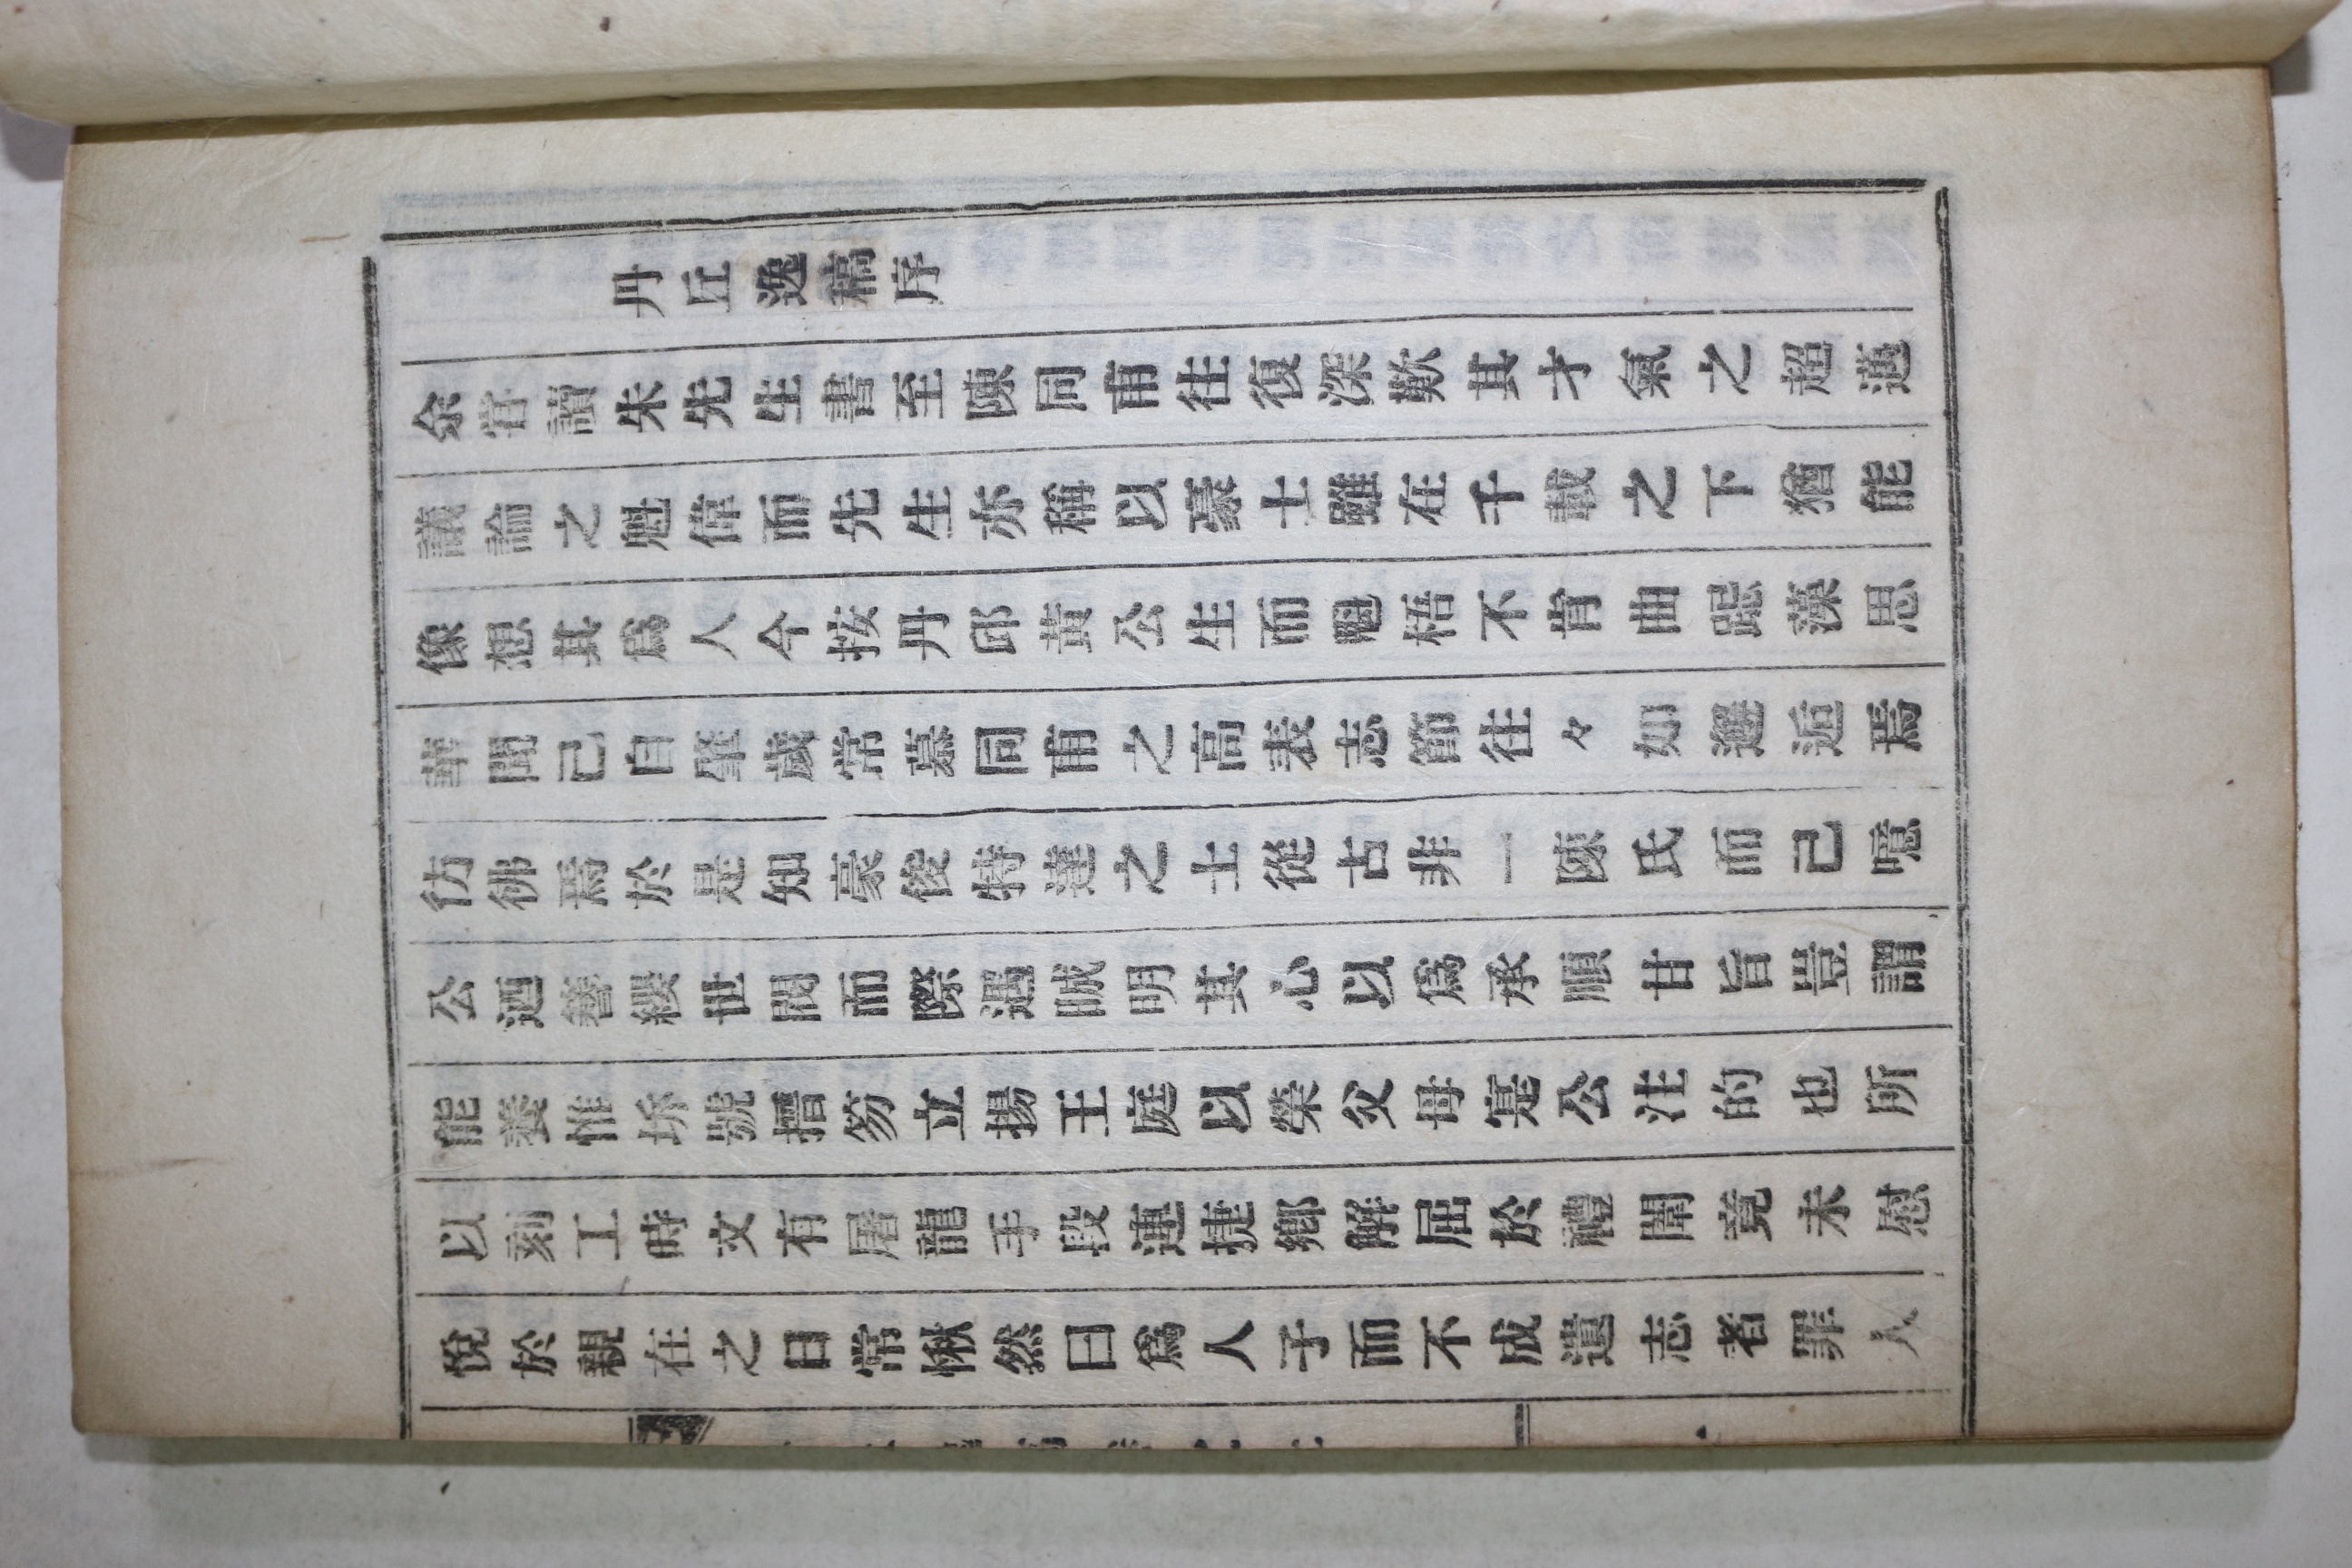 丹丘逸稿序
余甞讀朱先生書至陳同甫往復深歎其才氣之超邁
議論之魁偉而先生亦稱以豪士雖在千載之下猶能
像想其爲人今按丹邱黃公生而魁梧不肯曲跽藻思
華聞己自肇歲常慕同甫之高表志節往々如邂逅焉
彷彿焉於是知豪俊特達之士從古非一陳氏而己噫
公迺簪纓世閥而際遇晠明其心以爲承順甘旨豈謂
能養惟坼號搢笏立揚王庭以榮父母寔公注的也所
以刻工時文有屠龍手段連捷鄕解屈於禮闈竟未慰
悅於親在之日常愀然曰爲人子而不成遺志者罪人